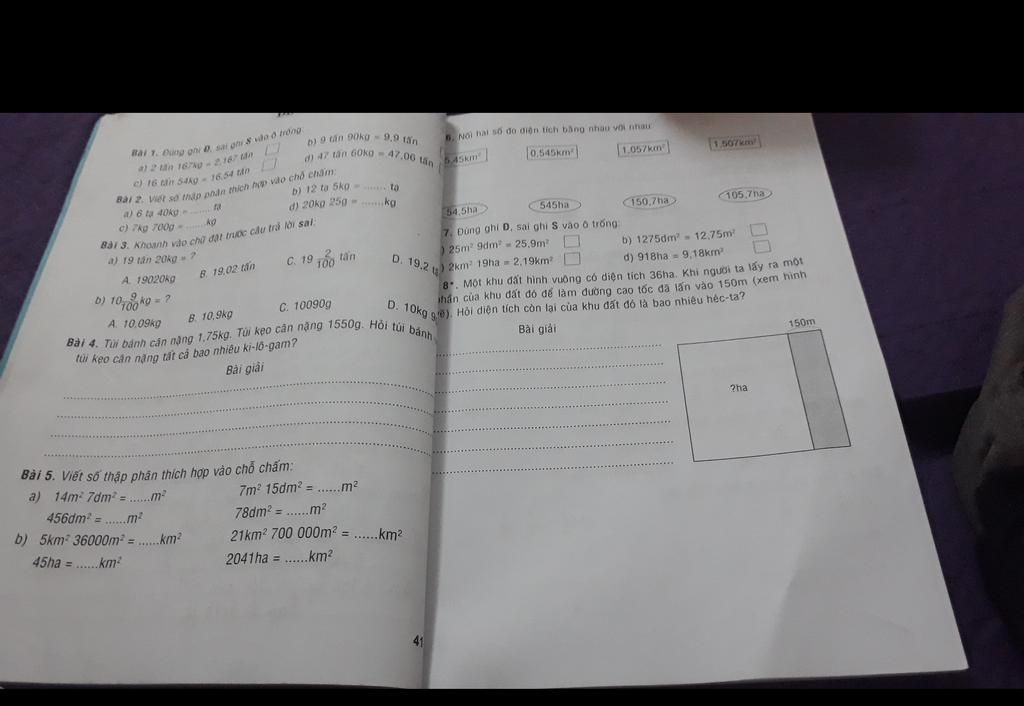 Bài 1. Đúng ghi Đ, sai ghi S vào ô trống:
a) 2 tấn 167kg = 2,167 tấn
b) 9 tấn 90kg = 9,9 tấn
c) 16 tấn 54kg = 16,54 tấn
d) 47 tấn 60kg = 47,06 tấn
Bài 2. Viết số thập phân thích hợp vào chỗ chấm:
a) 6 tạ 40kg = ........ tạ
b) 12 tạ 5kg = ........ tạ
c) 7kg 700g = .......kg
d) 20kg 25g = .......kg
Bài 3. Khoanh vào chữ đặt trước câu trả lời sai:
a) 19 tấn 20kg = ?
A. 19020kg B. 19,02 tấn C. 19 2/100 tấn D. 19,2
b) 10 9/100 kg = ?
A. 10,09kg B. 10,9kg C. 10090g D. 10kg
Bài 4. Túi bánh cân nặng 1,75kg. Túi kẹo cân nặng 1550g. Hỏi túi bánh
túi kẹo cân nặng tất cả bao nhiêu ki-lô-gam?
Bài giải
Bài 5. Viết số thập phân thích hợp vào chỗ chấm:
a) 14m² 7dm² = ......m² 7m² 15dm² = ......m²
456dm² = ......m² 78dm² = ......m²
b) 5km² 36000m² = ......km² 21km² 700 000m² = ......km²
45ha = ......km² 2041ha = ......km²
41
6. Nối hai số đo diện tích bằng nhau với nhau:
5,45km² 0,545km² 1,057km² 1,507km²
54,5ha 545ha 150,7ha 105,7ha
7. Đúng ghi Đ, sai ghi S vào ô trống:
) 25m² 9dm² = 25,9m² b) 1275dm² = 12,75m²
) 2km² 19ha = 2,19km² d) 918ha = 9,18km²
8*. Một khu đất hình vuông có diện tích 36ha. Khi người ta lấy ra một
phần của khu đất đó để làm đường cao tốc đã lấn vào 150m (xem hình
vẽ). Hỏi diện tích còn lại của khu đất đó là bao nhiêu héc-ta?
Bài giải
150m
?ha